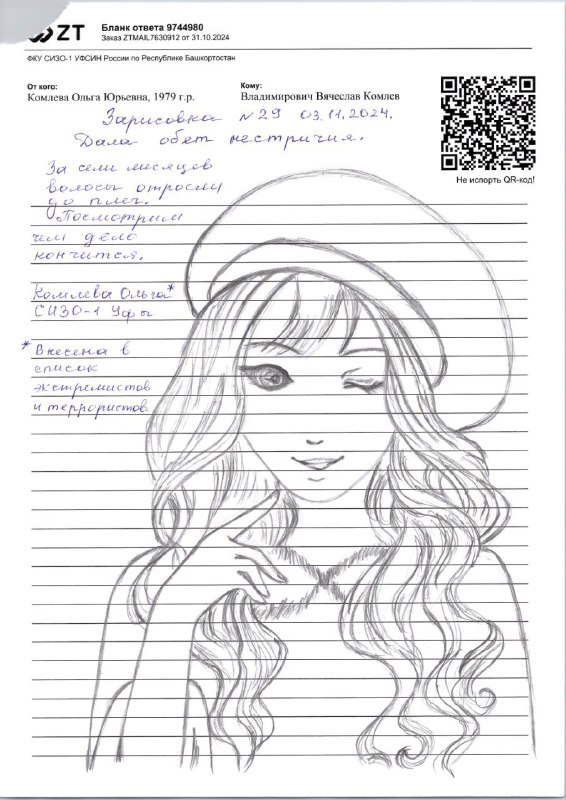 ZT
Бланк ответа 9744980
Заказ ZTMAIL7630912 от 31.10.2024
ФКУ СИЗО-1 УФСИН России по Республике Башкортостан
От кого:
Комлева Ольга Юрьевна, 1979 г.р.
Кому:
Владимирович Вячеслав Комлев
Не испорть QR-код!
Зарисовка №29 03.11.2024.
Дала обет нестричия.
За семь месяцев
волосы отросли
до плеч.
Посмотрим
чем дело
кончится.
Комлева Ольга*
СИЗО-1 Уфы
*Внесена в
список
экстремистов
и террористов